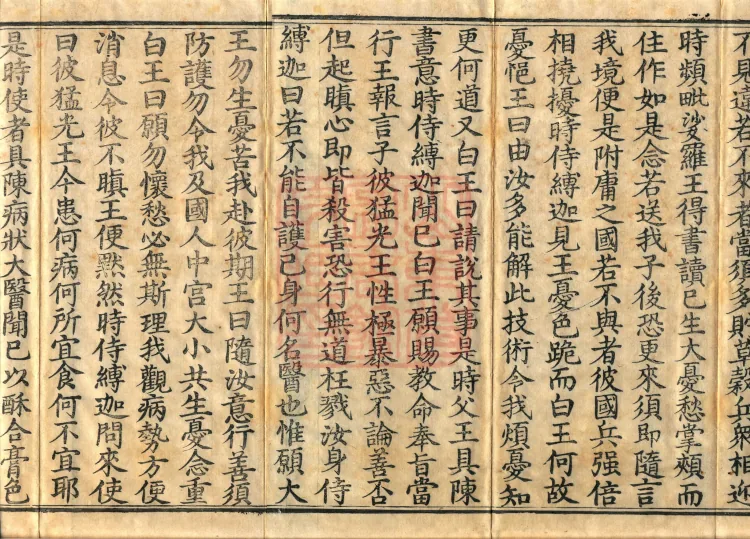 不見遣若不來者當須多貯草穀兵衆相近
時頻毗娑羅王得書讀已生大憂愁掌頰而
住作如是念若送我子後恐更來須即隨言
我境便是附庸之國若不與者彼國兵强倍
相撓擾時侍縛迦見王憂色跪而白王何故
憂悒王曰由汝多能解此技術令我煩憂知
更何道又白王曰請說其事是時父王具陳
書意時侍縛迦聞已白王願賜教命奉旨當
行王報言子彼猛光王性極暴惡不論善否
但起瞋心即皆殺害恐行無道枉戮汝身侍
縛迦曰若不能自護己身何名醫也惟願大
王勿生憂苦我赴彼期王曰隨汝意行善須
防護勿令我及國人中宮大小共生憂念重
白王曰願勿懷愁必無斯理我觀病勢方便
消息令彼不瞋王便默然時侍縛迦問來使
曰彼猛光王今患何病何所宜食何不宜耶
是時使者具陳病狀大醫聞已以酥合膏色